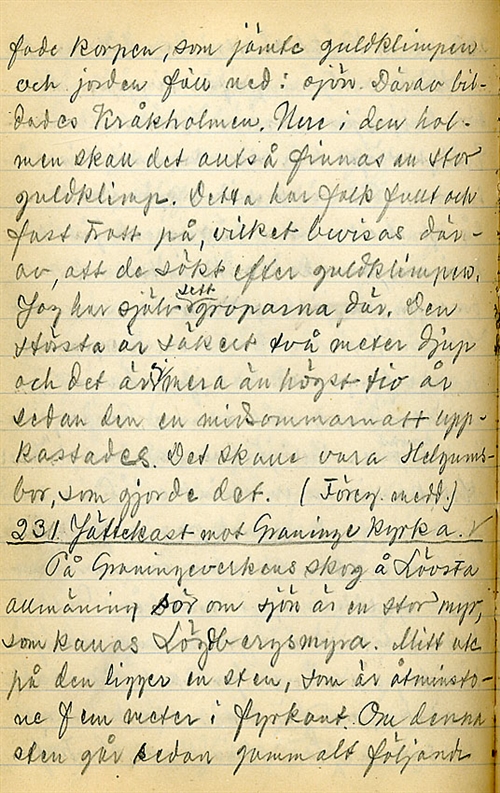 fade korpen, som jämte guldklimpen
och jorden föll ned i sjön. Därav bil-
dades Kråkholmen. Nere i den hol-
men skall det alltså finnas en stor
guldklimp. Detta har folk fullt och
fast trott på, vilket bevisas där-
av, att de sökt efter guldklimpen.
Jag har själv sett groparna där. Den
största är säkert två meter djup
och det är ej mera än högst tio år
sedan den en midsommarnatt upp-
kastades. Det skulle vara Helgums-
bor, som gjorde det. (Föreg. medd.)
231. Jättekast mot Graninge kyrka. V
På Graningeverkens skog å Lövsta
allmäning sör om sjön är en stor myr,
som kallas Lögdbergsmyra. Mitt ute
på den ligger en sten, som är åtminsto-
ne fem meter i fyrkant. Om denna
sten går sedan gammalt följande